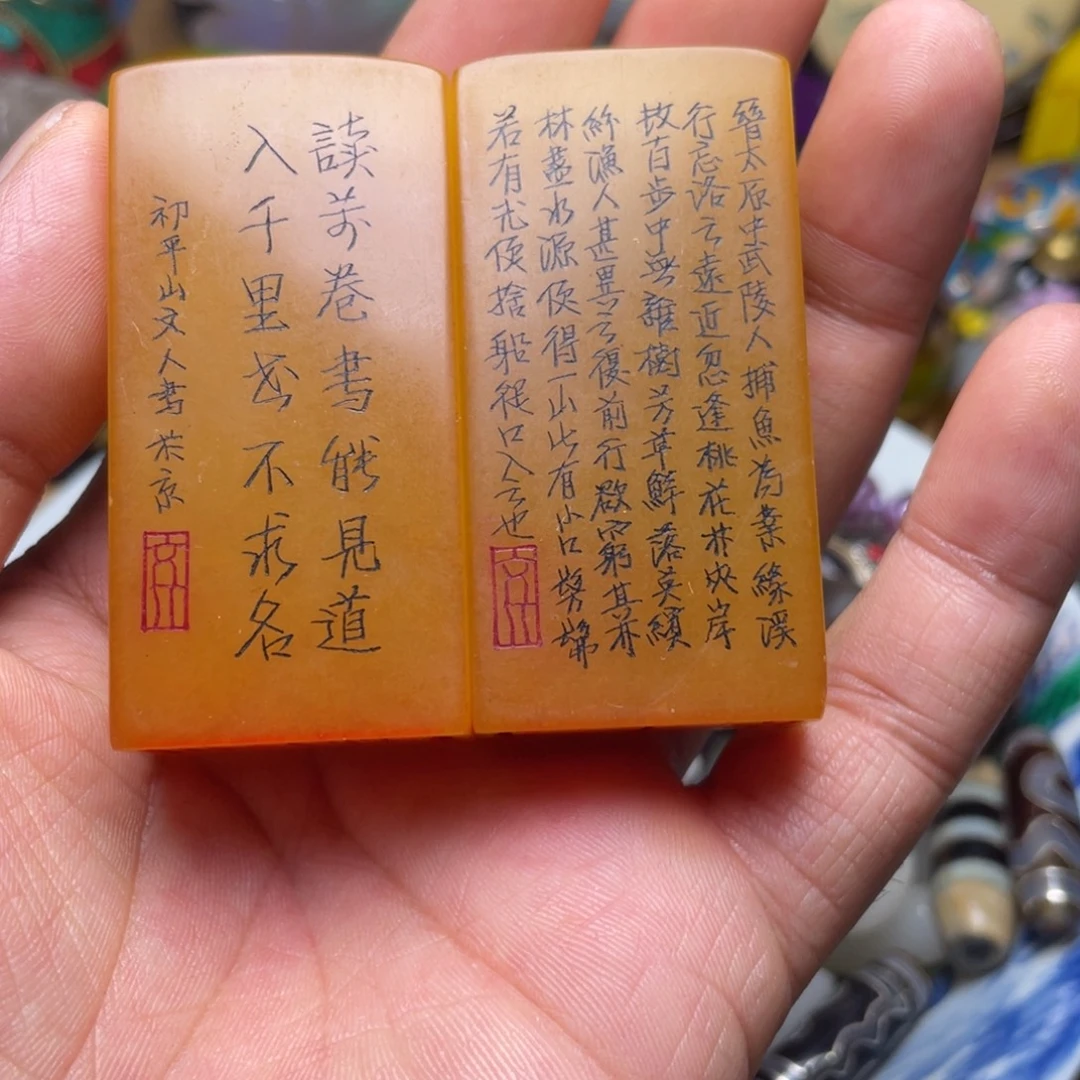 晉太原中武陵人捕魚為業緣溪
行忘洛之遠近忽逢桃花林夾岸
数百步中無雜樹芳草鮮落英繽
紛漁人甚異之復前行欲窮其林
林盡水源便得一山山有小口髣髴
若有光便捨船從口入之也
讀萬卷書能見道
入千里 不求名
初平山文人書於京